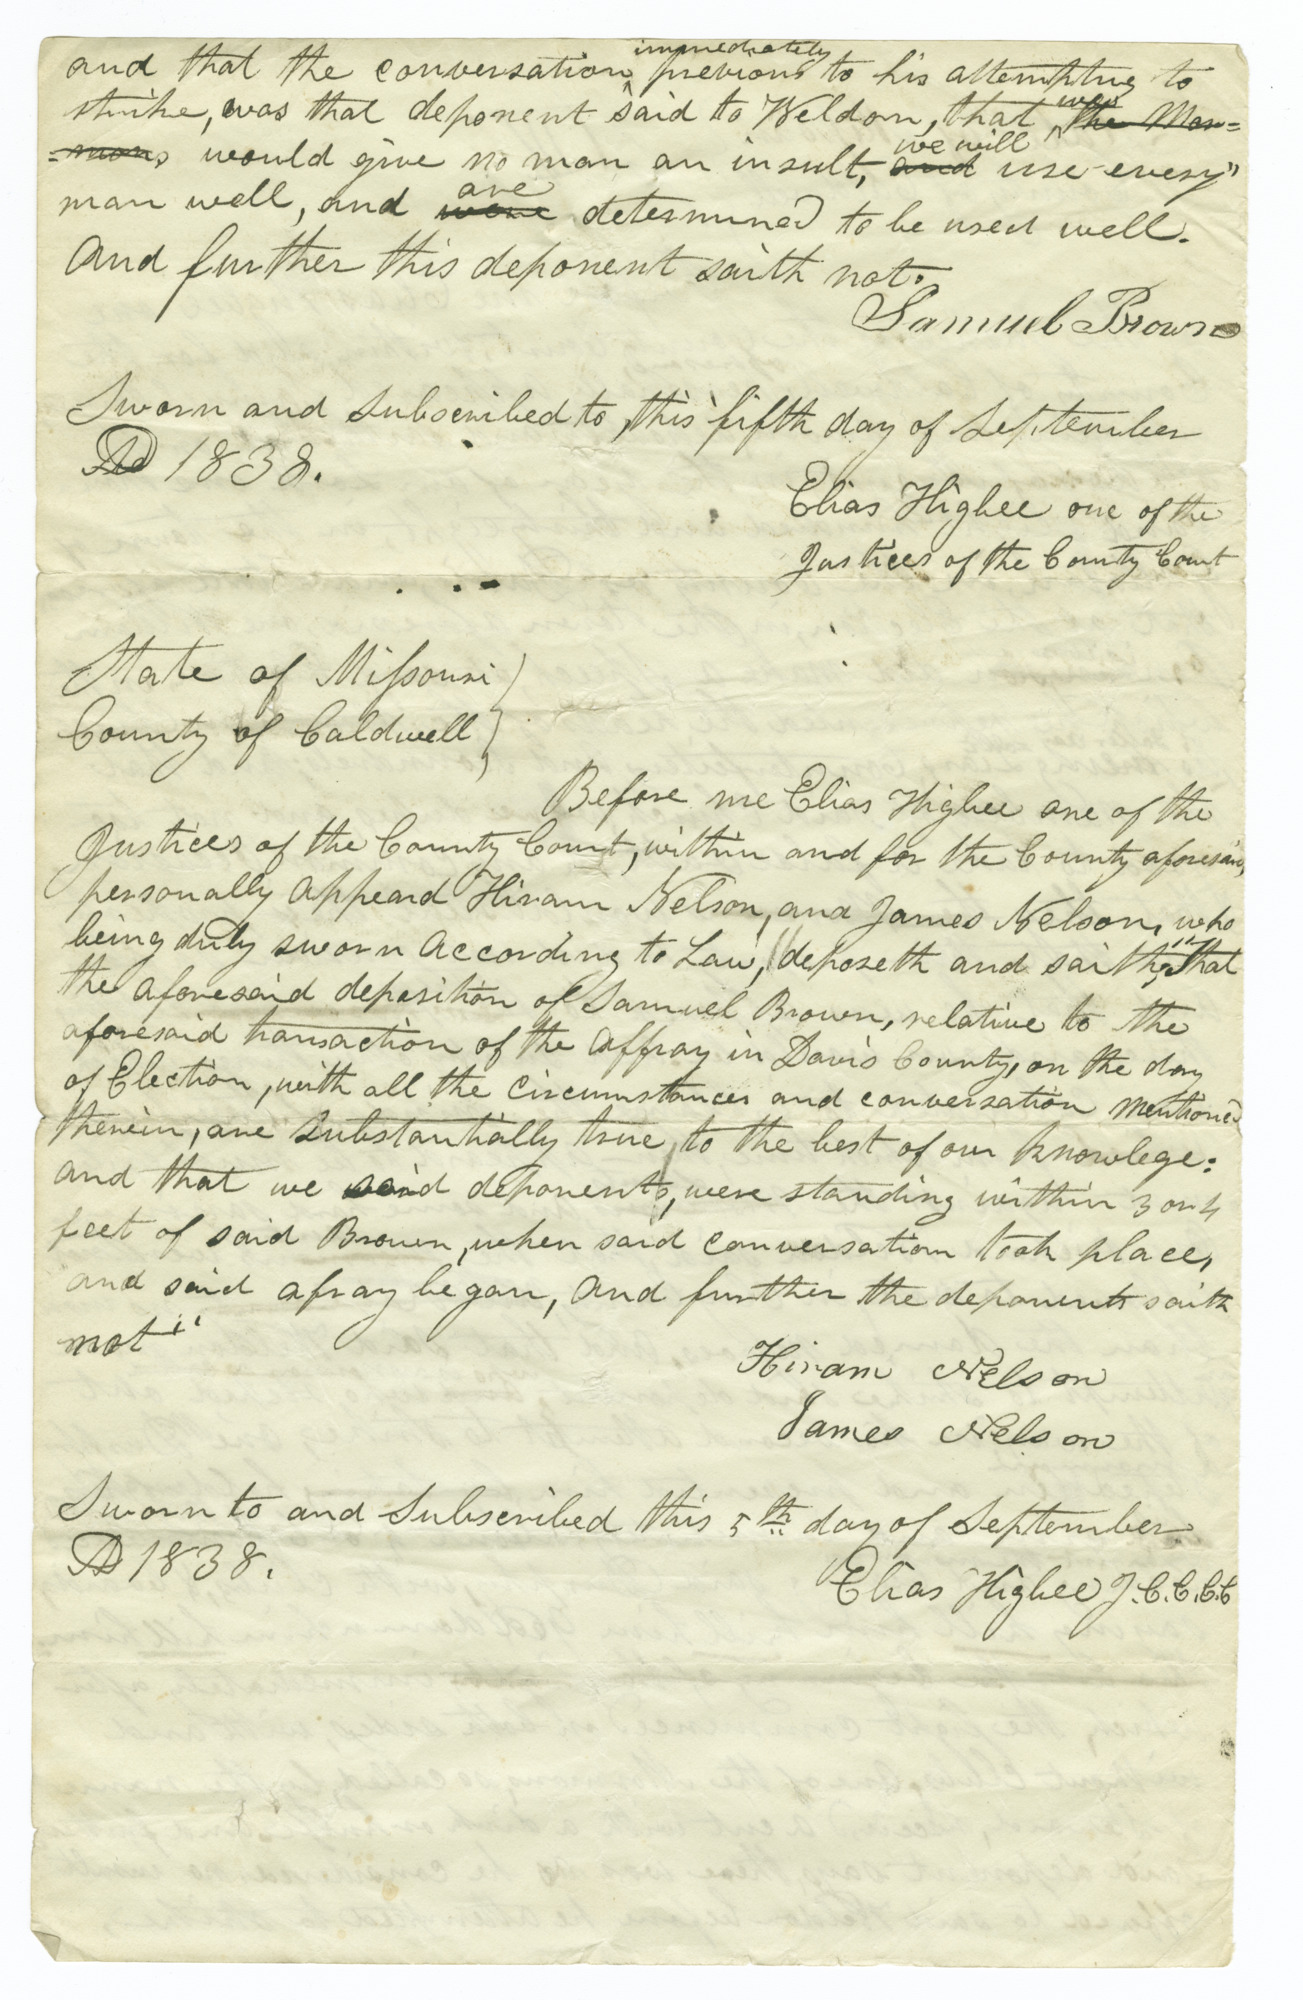 and that the conversation immediately previous to his attempting to
strike, was that deponent said to Weldon, that we the Mor=
=mons would give no man an insult, and we will use every
man well, and were are determined to be used well.
And further this deponent saith not.
Samuel Brown
Sworn and subscribed to, this fifth day of September
AD 1838.
Elias Higbee one of the
Justices of the County Court
State of Missouri
County of Caldwell
Before me Elias Higbee one of the
Justices of the County Court, within and for the County aforesaid,
personally appeard Hiram Nelson, and James Nelson, who
being duly sworn according to Law, deposeth and saith, "that
the aforesaid deposition of Samuel Brown, relative to the
aforesaid transaction of the affray in Davis County, on the day
of Election, with all the circumstances and conversation mentioned
therein, are substantially true, to the best of our knowlege:
and that we said deponents, were standing within 3 or 4
feet of said Brown, when said conversation took place,
and said afray began, and further the deponents saith
not"
Hiram Nelson
James Nelson
Sworn to and subscribed this 5th day of September
AD 1838.
Elias Higbee J.C.C.C.C